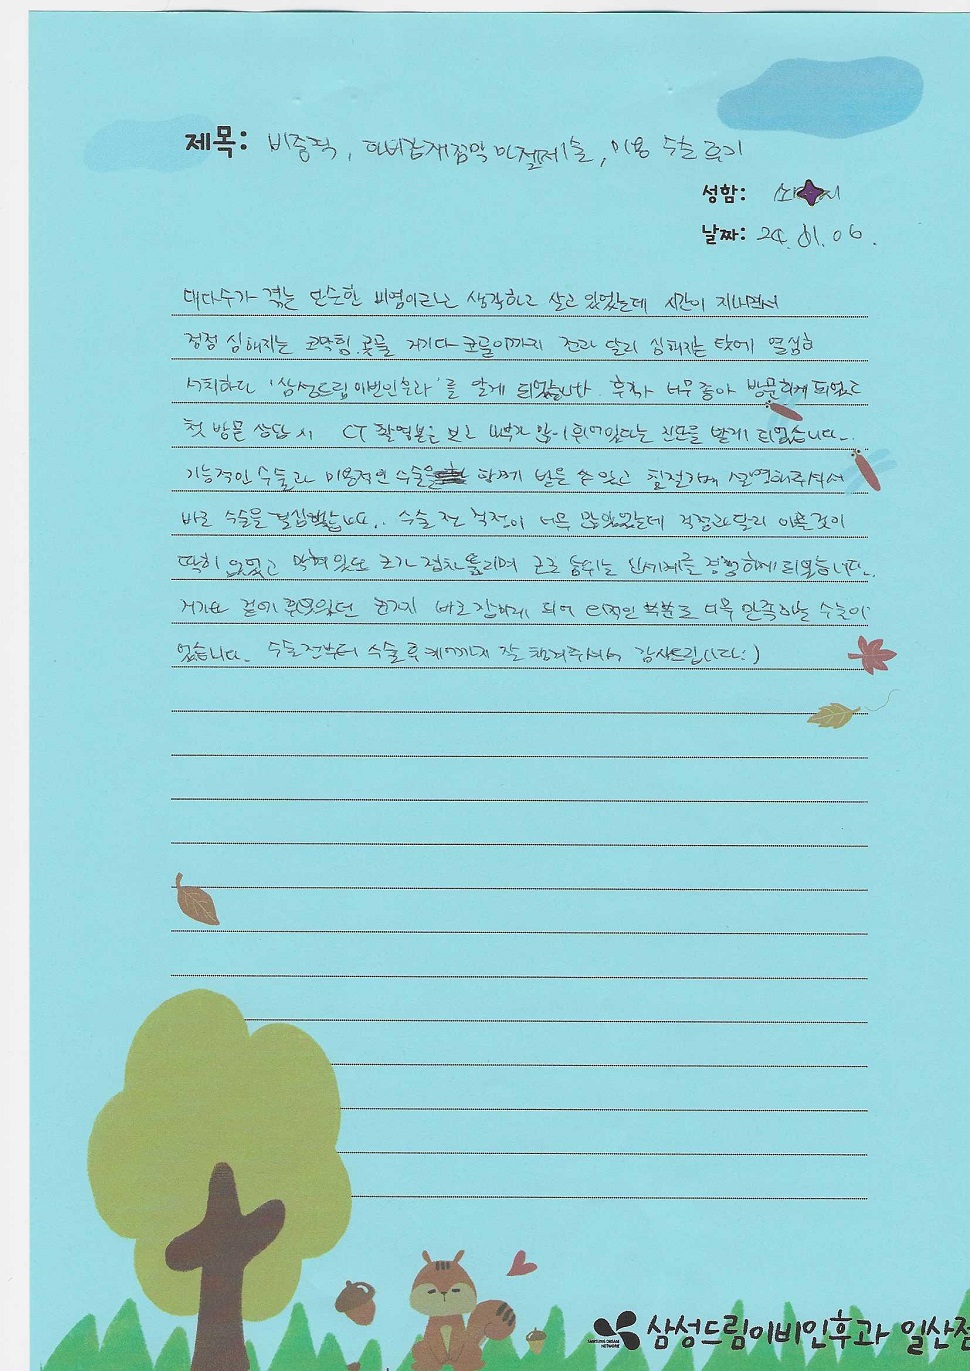 제목: 비중격, 하비갑개점막하절제술, 미용 수술 후기
성함:
날짜: 24. 01. 06.
대다수가 겪는 단순한 비염이라는 생각하고 살고 있었는데 시간이 지나면서
점점 심해지는 코막힘, 콧물 거기다 코골이까지 전과 달리 심해지는 탓에 열심히
서치하다 '삼성드림이비인후과'를 알게 되었습니다. 후기가 너무 좋아 방문하게 되었고
첫 방문 상담 시 CT 촬영본을 보고 내부가 많이 휘어있다는 진단을 받게 되었습니다..
기능적인 수술과 미용적인 수술을 함께 받을 수 있고 친절하게 설명해주셔서
바로 수술을 결심했습니다.. 수술 전 걱정이 너무 많았었는데 걱정과 달리 아픈 것이
딱히 없었고 막혀있던 코가 점차 뚫리며 코로 숨쉬는 신세계를 경험하게 되었습니다..
거기다 겉에 휘어있던 코까지 바로 잡히게 되어 미적인 부분으로 더욱 만족하는 수술이
었습니다. 수술 전부터 수술 후 케어까지 잘 챙겨주셔서 감사드립니다:)
SAMSUNG DREAM
NETWORK
삼성드림이비인후과 일산점